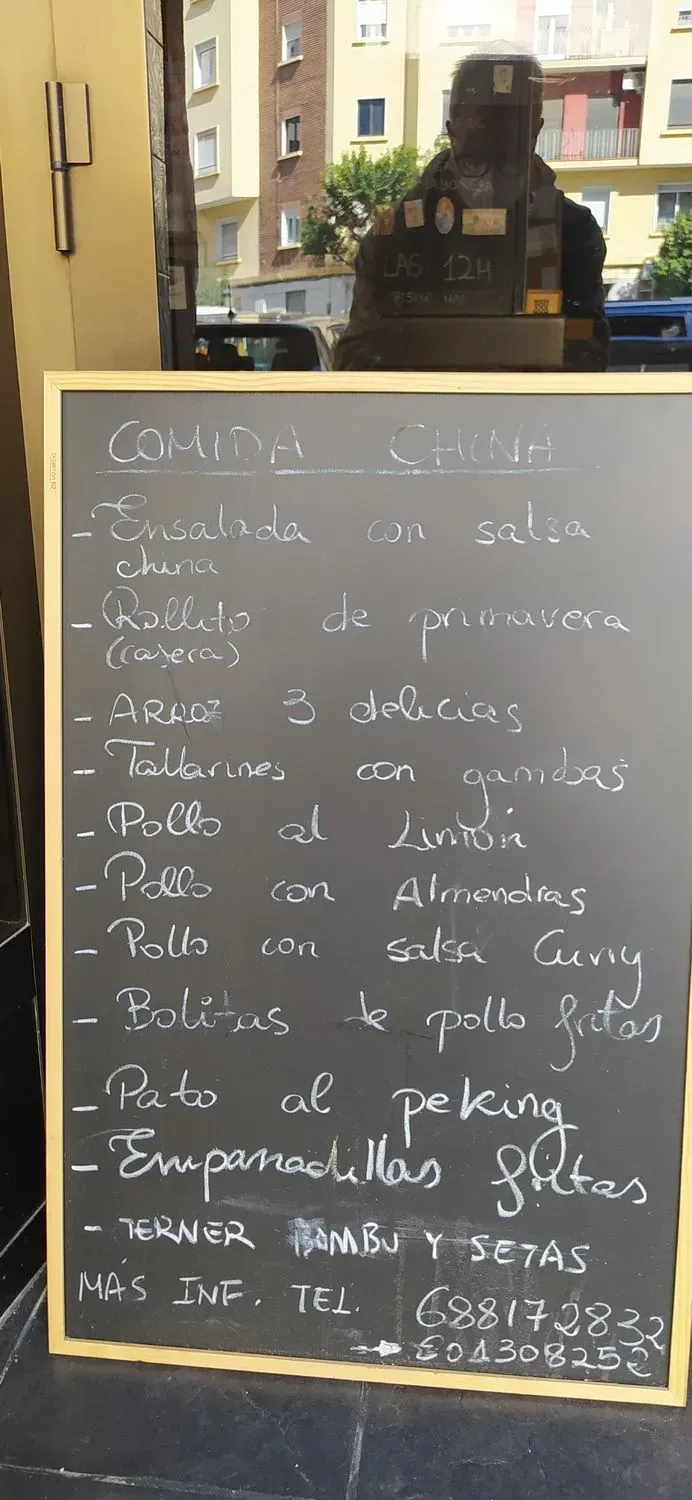 LAS 12H
COMIDA CHINA
- Ensalada con salsa
china
- Rollito de primavera
(casera)
- ARROZ 3 delicias
- Tallarines con gambas
- Pollo al Limón
- Pollo con Almendras
- Pollo con salsa Curry
- Bolitas de pollo fritas
- Pato al peking
- Empanadillas fritas
- TERNER BAMBU Y SETAS
MÁS INF. TEL. 688172832
601308252